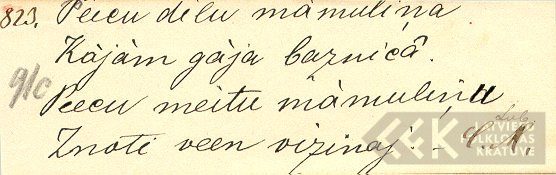 823. Peecu delu mâmuliņa
Kâjâm gâja baznicâ.
9/c
Peecu meitu mâmuliņu
Znoti veen vizinaj. –
LATVIEŠU
FOLKLORAS
KRĀTUVE